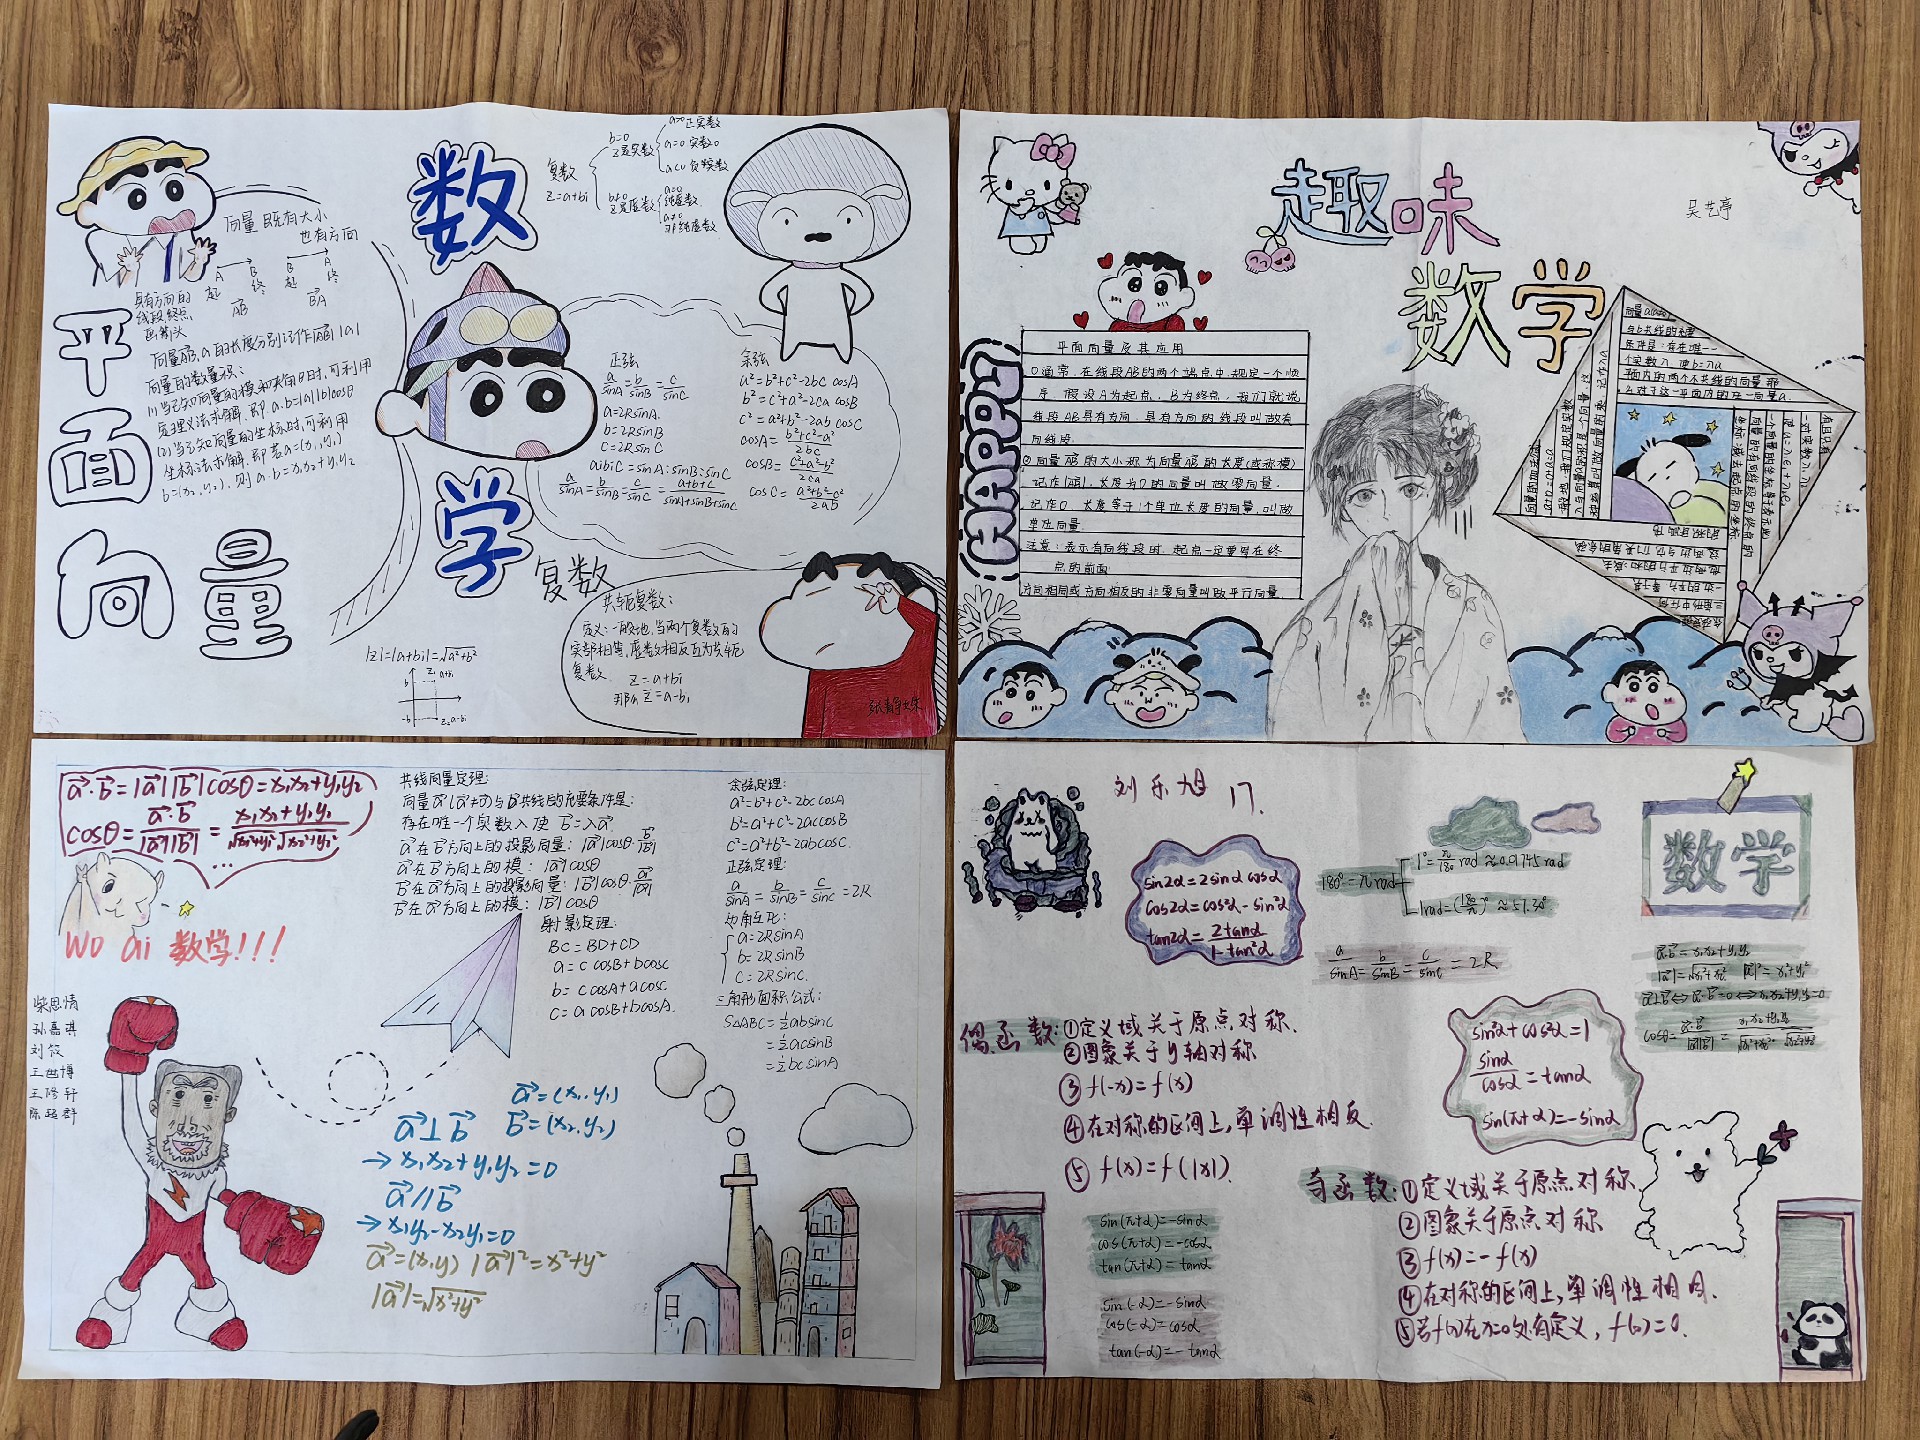 数
学
平
面
向
量
向量 既有大小
也有方向
A B
起 终
AB
B A
起 终
BA
具有方向的
线段终点
画箭头
向量AB, a的长度分别记作|AB| |a|
向量的数量积:
(2)当已知向量的坐标时,可利用
坐标法求解.即若a=(x₁,y₁)
b=(x₂,y₂).则a·b=x₁x₂+y₁y₂
复数
z=a+bi
b=0
z是实数
a>0正实数
a=0实数0
a<0负实数
b≠0
z是虚数
a=0
纯虚数
a≠0
非纯虚数
正弦
a/sinA=b/sinB=c/sinC
a=2RsinA.
b=2RsinB
c=2RsinC
a:b:c=sinA:sinB:sinC
a/sinA=b/sinB=c/sinC=a+b+c/sinA+sinB+sinC
余弦
a²=b²+c²-2bc cosA
b²=c²+a²-2ca cosB
c²=a²+b²-2ab cosC
cosA=b²+c²-a²/2bc
cosB=c²+a²-b²/2ca
cosC=a²+b²-c²/2ab
复数
共轭复数:
定义:一般地,当两个复数的
实部相等,虚数相反互为共轭
复数.
z=a+bi
那么z̄=a-bi
|z|=|a+bi|=√a²+b²
b z₁ a+bi
-b z₂ a-bi
趣味
数学
吴艺亭
HAPPY
平面向量及其应用
①通常,在线段AB的两个端点中,规定一个顺
序,假设A为起点,B为终点,我们就说
线段AB具有方向,具有方向的线段叫做有
向线段.
②向量AB的大小称为向量AB的长度(或称模)
记作|AB|,长度为0的向量叫做零向量,
记作0,长度等于1个单位长度的向量,叫做
单位向量
注意:表示有向线段时,起点一定要写在终
点的前面
方向相同或方向相反的非零向量叫做平行向量
与b共线的充要
条件是:存在唯一一
个实数λ,使b=λa
a⃗·b⃗=|a⃗||b⃗|cosθ=x₁x₂+y₁y₂
cosθ=a⃗·b⃗/|a⃗||b⃗|=x₁x₂+y₁y₂/√x₁²+y₁²√x₂²+y₂²
...
Wo ai 数学!!!
柴思情
孙嘉琪
刘饺
王世博
王修轩
陈超群
共线向量定理:
向量a⃗(a⃗≠0)与b⃗共线的充要条件是:
存在唯一个实数入使 b⃗=入a⃗.
a⃗在b⃗方向上的投影向量:|a⃗|cosθ·b⃗/|b⃗|
a⃗在b⃗方向上的模:|a⃗|cosθ
b⃗在a⃗方向上的投影向量:|b⃗|cosθ·a⃗/|a⃗|
b⃗在a⃗方向上的模:|b⃗|cosθ
射影定理:
BC=BD+CD
a=c cosB+bcosC
b=c cosA+a cosC.
c=a cosB+bcosA.
余弦定理:
a²=b²+c²-2bc cosA
b²=a²+c²-2accosB
c²=a²+b²-2abcosC.
正弦定理:
a/sinA=b/sinB=c/sinC=2R
边角互化:
a=2RsinA
b=2RsinB
c=2RsinC.
三角形面积公式:
S△ABC=½absinC
=½acsinB
=½bcsinA
a⃗=(x₁,y₁)
b⃗=(x₂,y₂)
a⃗⊥b⃗
→x₁x₂+y₁y₂=0
a⃗//b⃗
→x₁y₂-x₂y₁=0
a⃗=(x,y) |a⃗|²=x²+y²
|a⃗|=√x²+y²
刘乐旭 17.
sin2α=2sinα cosα
cos2α=cos²α-sin²α
tan2α=2tanα/1-tan²α
180°=π rad
1°=π/180 rad≈0.01745 rad
1rad=(180/π)°≈57.30°
a/sinA=b/sinB=c/sinC=2R
数学
a⃗·b⃗=x₁x₂+y₁y₂
a⃗⊥b⃗⇔a⃗·b⃗=0⇔x₁x₂+y₁y₂=0
偶函数:①定义域关于原点对称.
②图象关于y轴对称
③f(-x)=f(x)
④在对称的区间上,单调性相反.
⑤f(x)=f(|x|).
sin²α+cos²α=1
sinα/cosα=tanα
sin(π+α)=-sinα
奇函数:①定义域关于原点对称.
②图象关于原点对称
③f(x)=-f(x)
④在对称的区间上,单调性相同.
⑤若f(x)在x=0处有定义,f(0)=0.
sin(π+α)=-sinα
cos(π+α)=-cosα
tan(π+α)=tanα
sin(-α)=-sinα
cos(-α)=cosα
tan(-α)=-tanα